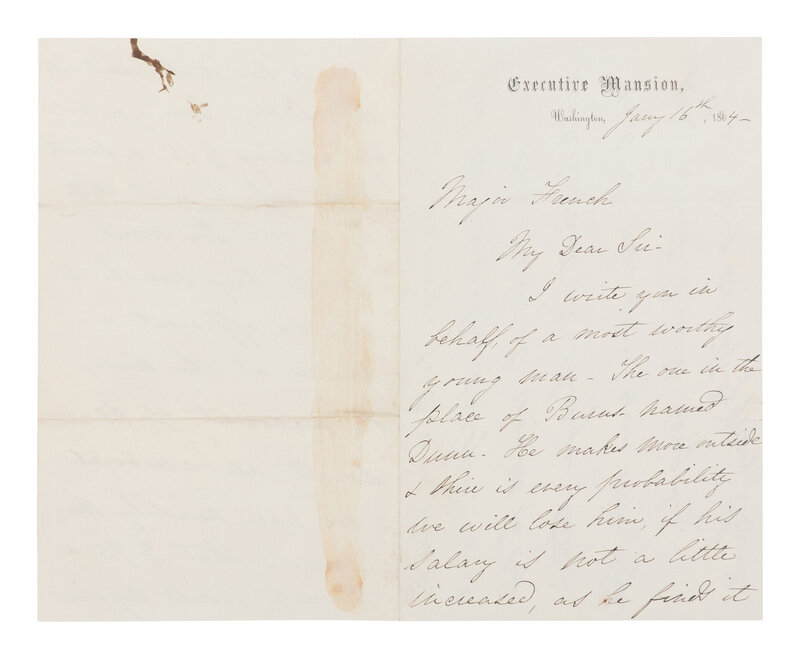 Executive Mansion,
Washington, Jany 16th, 1864-
Major French
My Dear Sir-
I write you in
behalf, of a most worthy
young man - The one in the
place of Burns named
Dunn - He makes more outside
& there is every probability
we will lose him, if his
salary is not a little
increased, as he finds it